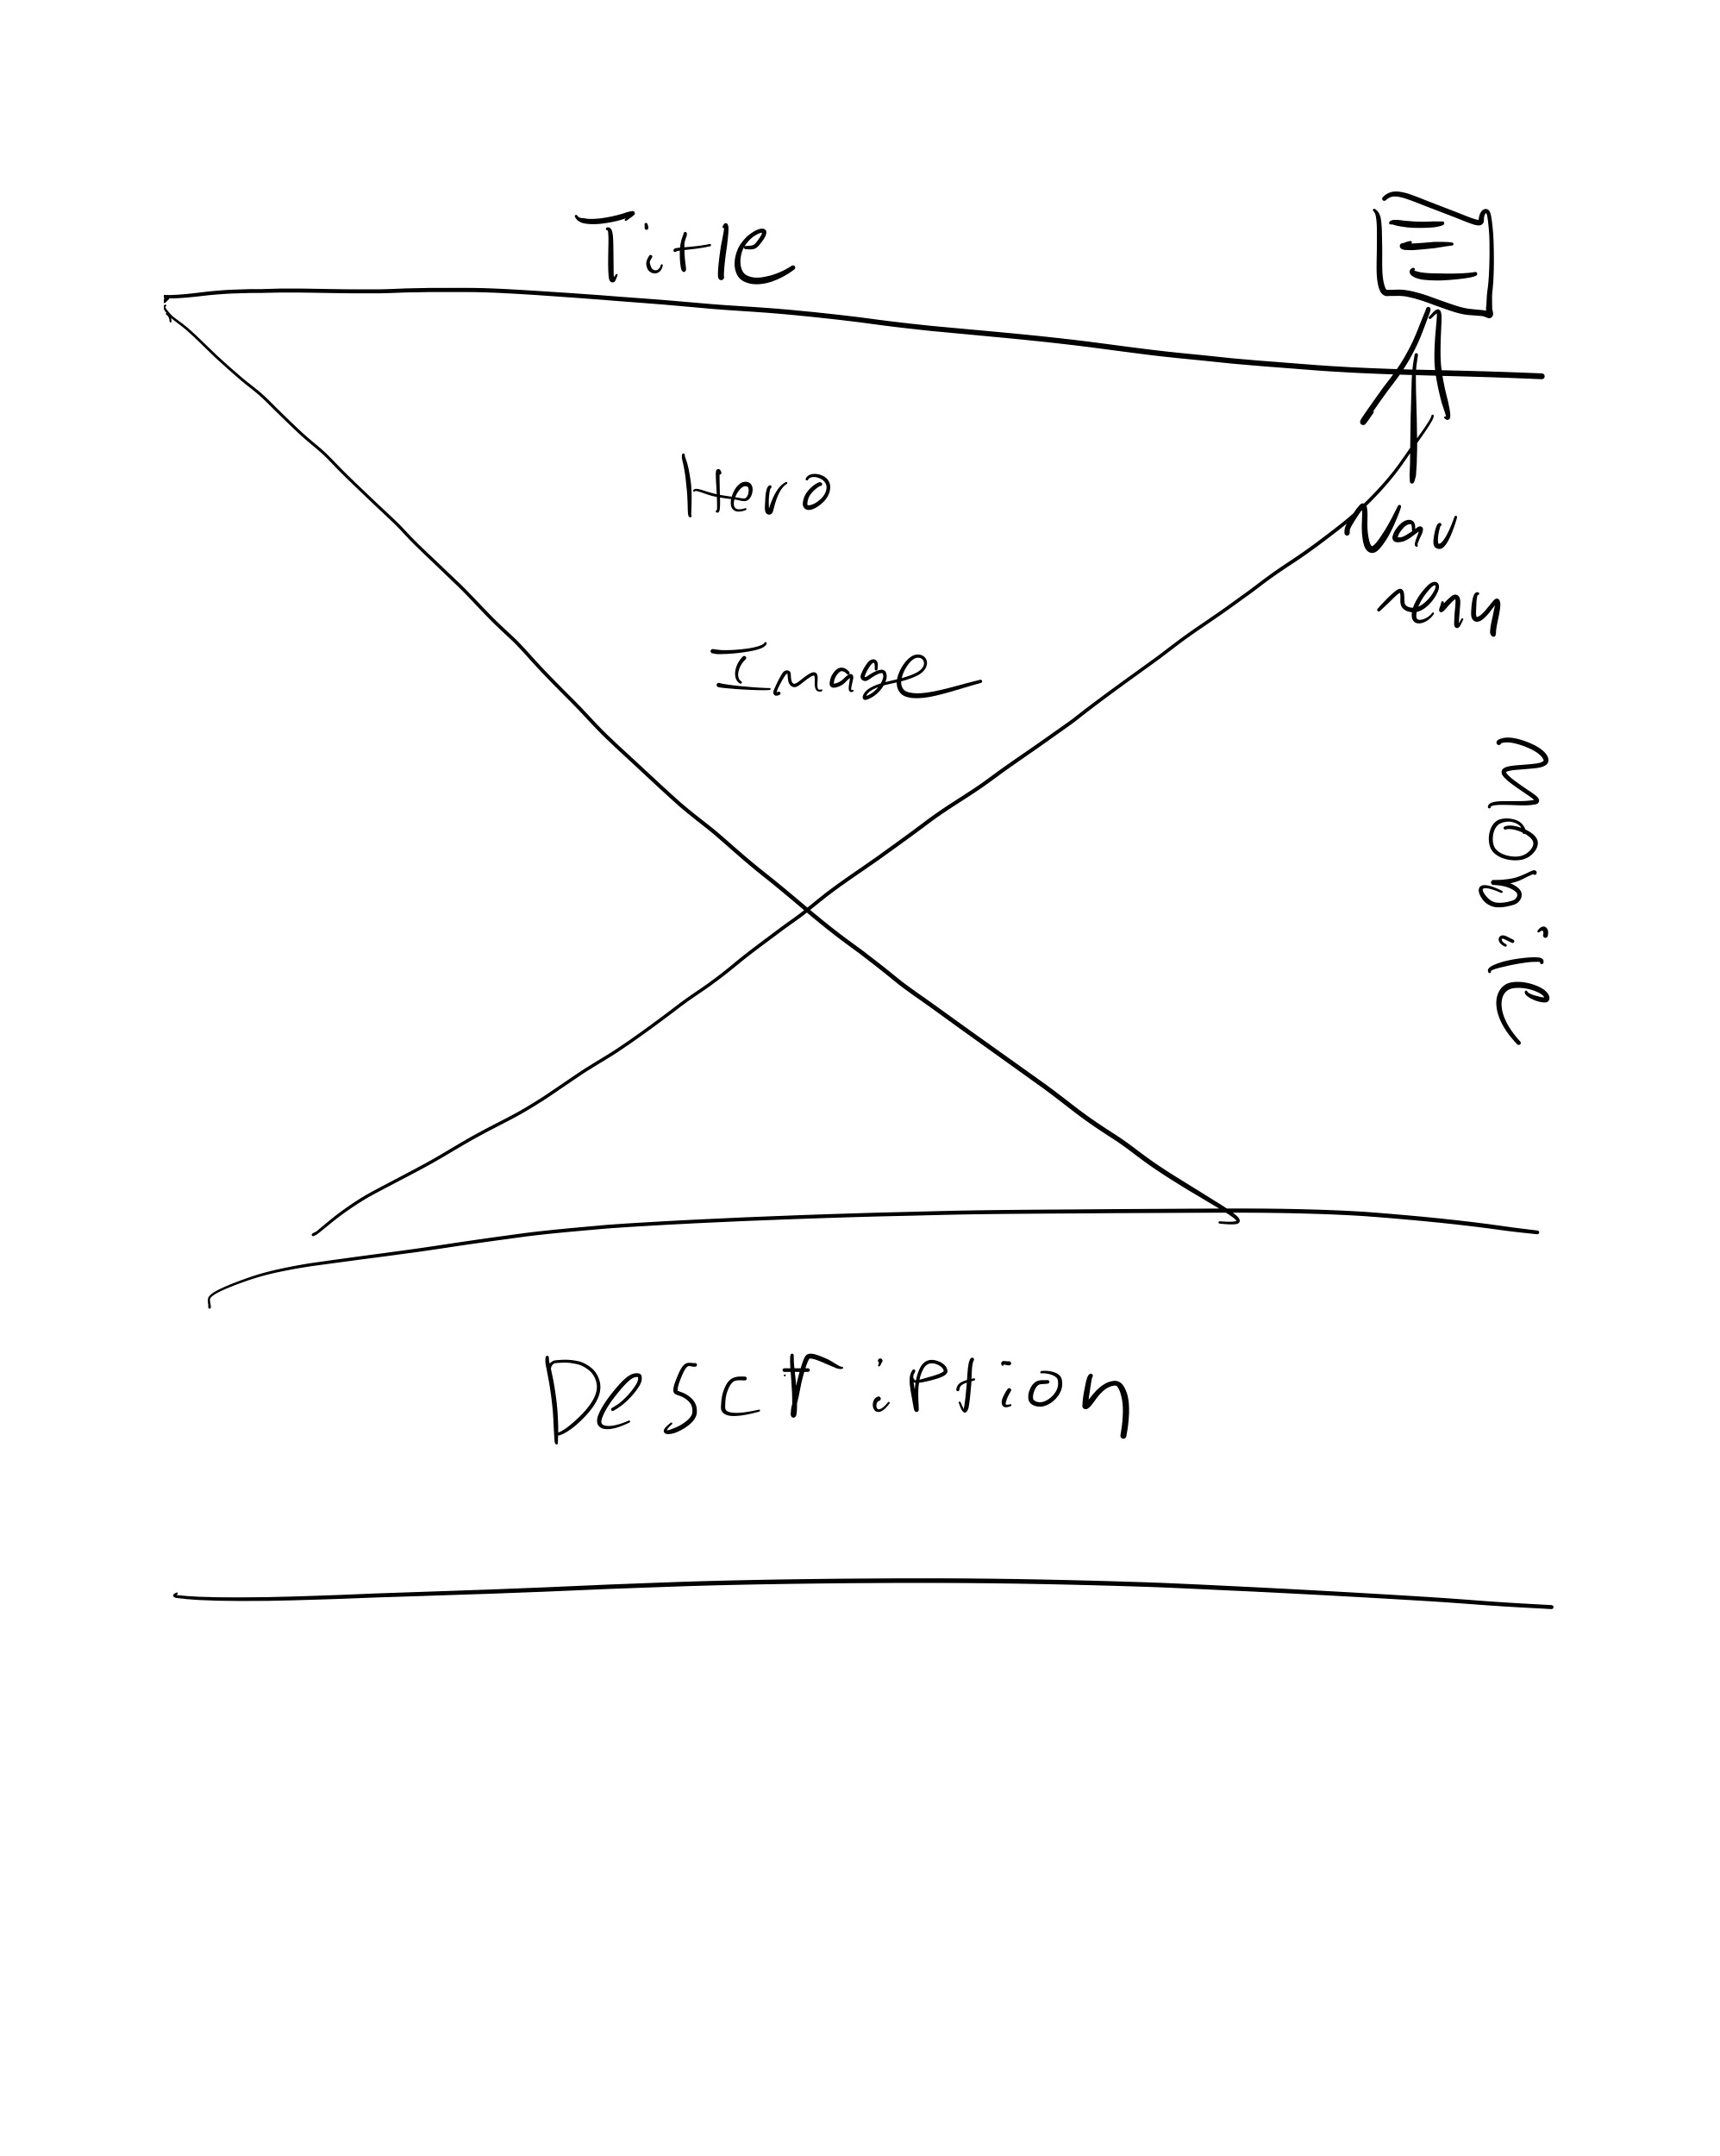 Title
Hero
Image
Nav
menu
Mobile
Description